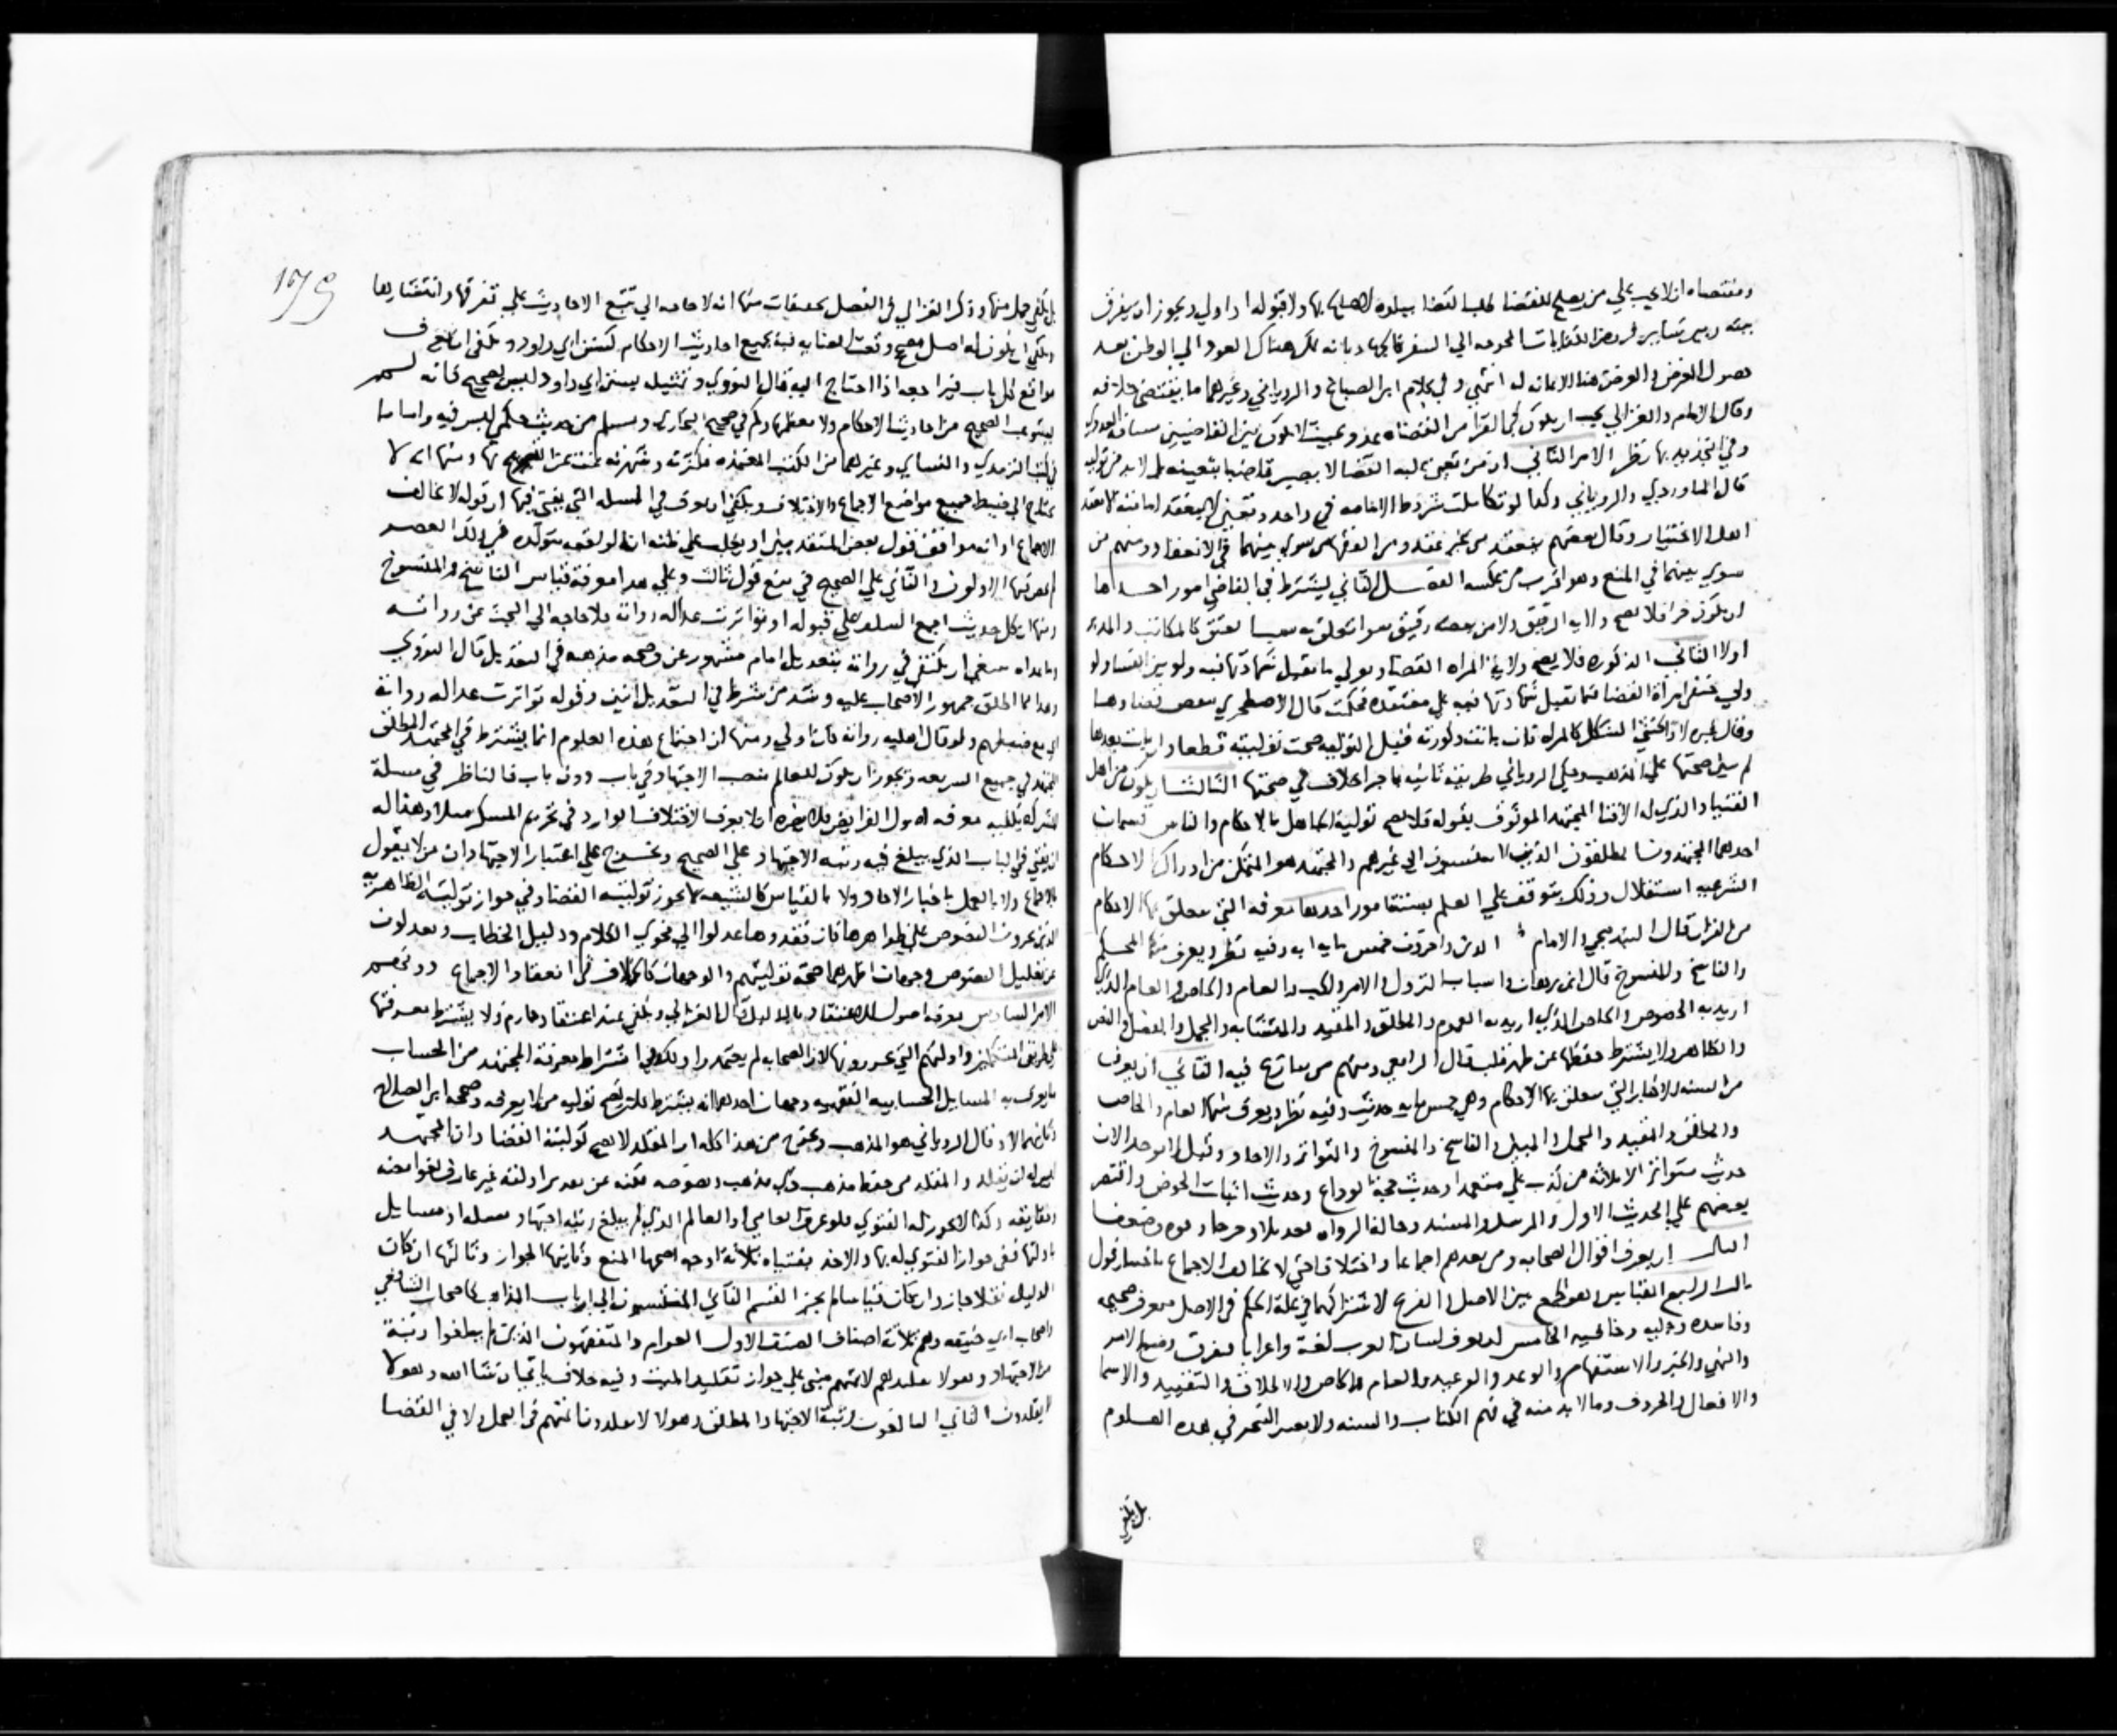 ومقتضاه انه لا يجب علي من يصلح للقضا طلب القضا ببلده لا صلح بها ولا قبوله اذا ولي ويجوز ان يفرق
بينه وبين سائر فروض الكفايات المحوجه الي السفر كالجهاد بانه يمكن هناك العود الي الوطن بعد
حصول الغرض والغرض هنا لا نهاية له انتهي وفي كلام ابن الصباغ والروياني وغيرهما ما يقتضي خلافه
وقال الامام والغزالي يجب ان يكون
وفي التحديد بها نظر الامر الثاني ان من تعين عليه القضا لا يصير قاضيا بتعينه بل لا بد من توليه
قال الماوردي والروياني وكذا لو تكاملت شروط الامامه في واحد وتعين لا تنعقد امامته الا بعقد
اهل الاختيار وقال بعضهم ينعقد من غير عقد ومن الفقها من سوي بينهما في الانعقاد ومنهم من
سوي بينهما في المنع وهو اقرب من عكسه الفصل الثاني يشترط في القاضي امور احدها
ان يكون حرا فلا يصح ولاية الرقيق ولا من بعضه رقيق سوا تعلق به سبب العتق كالمكاتب والمدبر
اولا الثاني الذكوره فلا يصح ولاية المراه القضا ولو في ما تقبل شهادتها فيه
ولي حنفي امراة القضا فيما تقبل شهادتها فيه علي معتقده فحكمت قال الاصطخري ينقض قضاوها
وقال غيره لا والخنثي المشكل كالمراه فان بانت ذكورته قبل التوليه صحت توليته قطعا وان بانت بعدها
لم يتبين صحتها علي المذهب وحكي الروياني طريقة ثانيه حاجزا خلاف في صحتها الثالث ان يكون من اهل
الفتيا والذي له الافتا المجتهد الموثوق بقوله فلا يصح تولية الجاهل بالاحكام والناس قسمان
احدهما المجتهدون المطلقون الذين لا ينتسبون الي غيرهم والمجتهد هو المتمكن من ادراك الاحكام
الشرعيه استقلالا وذلك يتوقف علي العلم بستة امور احدها معرفه التي تتعلق بها الاحكام
من القران قال البندنيجي والامام الدين واخرون خمس مايه ايه وفيه نظر ويعرف منها المحكم
والناسخ والمنسوخ قال ابن برهان واسباب النزول والامر والنهي والعام والخاص والعام الذي
اريد به الخصوص والخاص الذي اريد به العموم والمطلق والمقيد والمتشابه والمجمل والمفصل والنص
والظاهر ولا يشترط حفظها عن ظهر قلب قال الرافعي ومنهم من ينازع فيه الثاني ان يعرف
من السنه الاخبار التي تتعلق بها الاحكام وهي خمس مايه حديث وفيه نظر ويعرف منها العام والخاص
والمطلق والمقيد والمجمل والمبين والناسخ والمنسوخ والتواتر والاحاد وقيل لا يوجد الان
حديث متواتر الا ثلاثه من كذب علي متعمدا وحديث حجة الوداع وحديث اثبات الحوض واقتصر
بعضهم علي الحديث الاول والمرسل والمسند وحالة الرواه تعديلا وجرحا وقوه وضعفا
الثالث ان يعرف اقوال الصحابه ومن بعدهم اجماعا واختلافا حتي لا يخالف الاجماع باختيار قول
ثالث الرابع القياس القطع بين الاصل والفرع لاشتراكهما في علة الحكم في الاصل فيعرف صحيحه
وفاسده وجليه وخافيه الخامس ان يعرف لسان العرب لغة واعرابا ليفرق وضع الامر
والنهي والخبر والاستفهام والوعد والوعيد والعام والخاص والاطلاق والتقييد والاسما
والافعال والحروف وما لا بد منه في فهم الكتاب والسنه ولا يعتبر التبحر في هذه العلوم
بل يكفي
179
بل يكفي جمل منها وذكر الغزالي في الفصل تخفيفات منها انه لا حاجه الي تتبع الاحاديث علي تفرقها وانتشارها
ويكفي ان يكون له اصل مصحح وقعت العنايه فيه بجميع احاديث الاحكام كسنن ابي داود ويكفي ان يعرف
مواقع كل باب فيراجعه اذا احتاج اليه قال النووي وتمثيله بسنن ابي داود ليس بصحيح فانه لم
يستوعب الصحيح من احاديث الاحكام ولا معظمها وكم في صحيح البخاري ومسلم من حديث حكمي ليس فيه واما ما
في كتب الترمذي والنسائي وغيرهما من الكتب المعتمده فكثرته وشهرته غنية عن التصريح بها ومنها انه لا
يحتاج الي ضبط جميع مواضع الاجماع والاختلاف ويكفي ان يعرف في المسله التي يفتي فيها ان قوله لا يخالف
الاجماع اما انه موافق لقول بعض المتقدمين او يغلب علي ظنه ان لو لم يقع متولده في ذلك العصر
لم يعرفها الاولون والثاني علي الصحيح في منع قول ثالث وعلي هذا معرفة قياس الناسخ والمنسوخ
ومنها ان كل حديث اجمع السلف علي قبوله او تواترت عداله رواته فلا حاجه الي البحث عن رواته
وما عداه فينبغي ان يكتفي في رواته بتعديل امام مشهور عن صحه مذهبه في التعديل قال النووي
وهذا مما اطلق جمهور الاصحاب عليه وشذ من شرط في التعديل اثنين وقوله تواترت عداله رواته
اي مع ضبطهم ولو قال اهليه رواته كان اولي ومنها ان اجتماع هذه العلوم انما يشترط في المجتهد المطلق
المجتهد في جميع الشريعه ويجوز ان يكون للعالم منصب الاجتهاد في باب دون باب فالناظر في مسلة
المشركه يكفيه معرفه اصول الفرايض ولا يضره ان لا يعرف الاختلاف الوارد في تحريم المسكر مثلا وهذا له
ان يفتي في الباب الذي يبلغ فيه رتبه الاجتهاد علي الصحيح ويخرج علي اعتبار الاجتهاد ان من لا يقول
بالاجماع ولا بالعمل باخبار الاحاد ولا بالقياس كالشيعه لا يجوز توليته القضا وفي جواز توليته الظاهريه
الذين يجرون النصوص علي ظواهرها فان فقدوها عدلوا الي فحوي الكلام ودليل الخطاب ويعدلون
عن تعليل النصوص وجهان اظهرهما صحة توليتهم والوجهان كالخلاف في انعقاد الاجماع دونهم
الامر السادس معرفه اصول الاعتقاد بالدليل قال الغزالي ويكفي عندي اعتقاد جازم ولا يشترط معرفتها
علي طريق المتكلمين وادلتهم التي يحررونها لان الصحابه لم يعتمدوا ذلك وفي اشتراط معرفة المجتهد من الحساب
ما يعرف به المسايل الحسابيه الفقهيه وجهان احدهما انه يشترط فلا يصح توليه من لا يعرفه وصححه ابن الصلاح
وثانيهما لا وقال الروياني هو المذهب وتحرر من هذا كله ان المقلد لا يصح توليته القضا وان المجتهد
ليس له ان يقلد والمقلد من حفظ مذهب ذي مذهب ونصوصه لكنه عن تقرير ادلته غير عارف بغوامضه
وحقايقه وكذا لا يجوز له الفتوي فلو عرف العامي او العالم الذي لم يبلغ رتبه اجتهاد مسله او مسايل
بادلتها ففي جواز الفتوي له بها والاخذ بفتياه ثلاثة اوجه اصحها المنع وثانيها الجواز وثالثها ان كان
الدليل نقلا جاز وان كان قياسا لم يجز القسم الثاني المنتسبون الي ارباب المذاهب كاصحاب الشافعي
واصحاب ابي حنيفه وهم ثلاثة اصناف الصنف الاول العوام والمتفقهون الذين لم يبلغوا رتبة
الاجتهاد وهولا تقليدهم لايمتهم مبني علي جواز تقليد الميت وفيه خلاف ياتي ان شا الله وهولا
المقلدون الثاني البالغون رتبة الاجتهاد المطلق وهولا لا يقلدون ائمتهم في العمل ولا في القضا